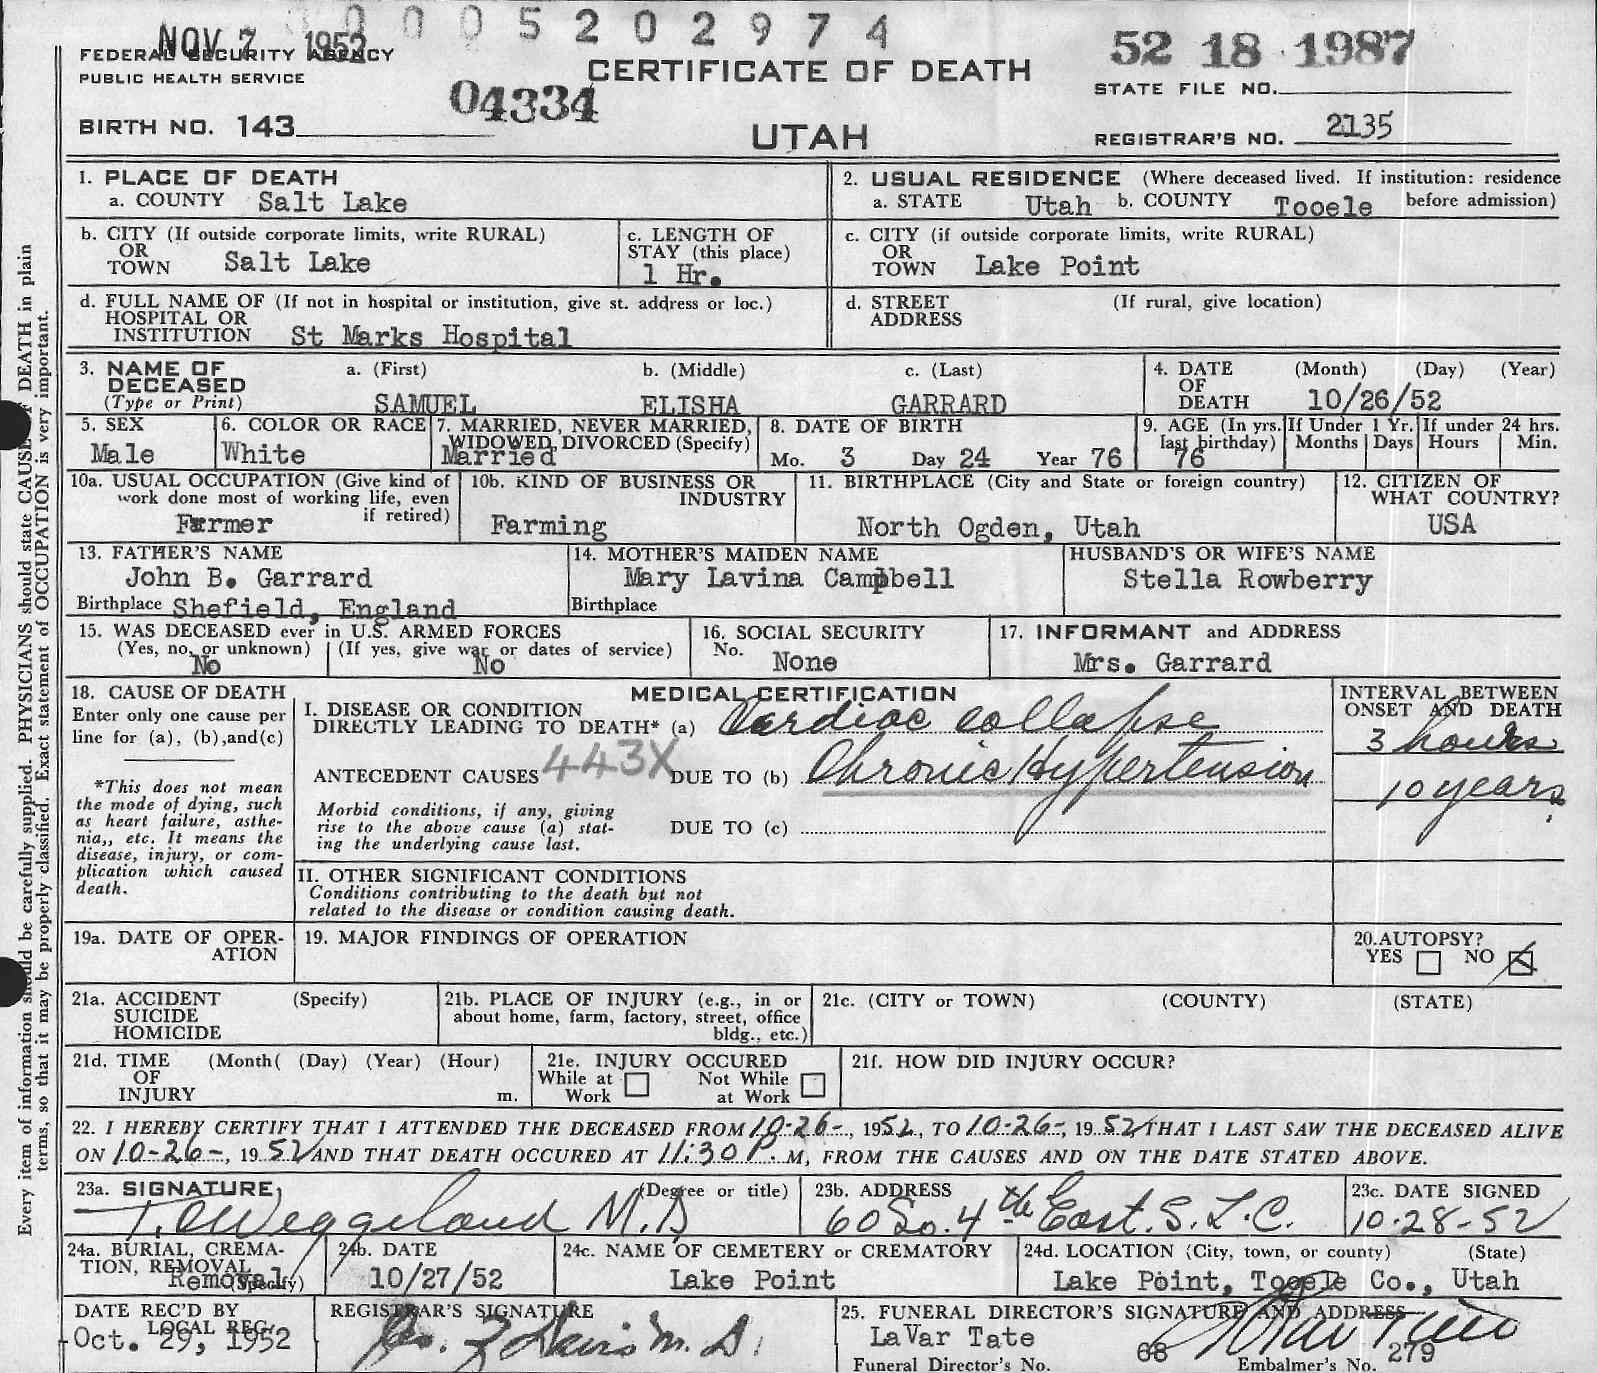 0005202974
NOV 7 1952
FEDERAL SECURITY AGENCY
PUBLIC HEALTH SERVICE
CERTIFICATE OF DEATH
52 18 1987
STATE FILE NO.
04334
BIRTH NO. 143
UTAH
REGISTRAR'S NO. 2135
1. PLACE OF DEATH
a. COUNTY Salt Lake
2. USUAL RESIDENCE (Where deceased lived. If institution: residence before admission)
a. STATE Utah b. COUNTY Tooele
b. CITY (If outside corporate limits, write RURAL)
OR
TOWN Salt Lake
c. LENGTH OF
STAY (this place)
1 Hr.
c. CITY (if outside corporate limits, write RURAL)
OR
TOWN Lake Point
d. FULL NAME OF (If not in hospital or institution, give st. address or loc.)
HOSPITAL OR
INSTITUTION St Marks Hospital
d. STREET (If rural, give location)
ADDRESS
3. NAME OF
DECEASED
(Type or Print)
a. (First) b. (Middle) c. (Last)
SAMUEL ELISHA GARRARD
4. DATE (Month) (Day) (Year)
OF
DEATH 10/26/52
5. SEX
Male
6. COLOR OR RACE
White
7. MARRIED, NEVER MARRIED,
WIDOWED, DIVORCED (Specify)
Married
8. DATE OF BIRTH
Mo. 3 Day 24 Year 76
9. AGE (In yrs.
last birthday)
76
If Under 1 Yr.
Months Days
If under 24 hrs.
Hours Min.
10a. USUAL OCCUPATION (Give kind of
work done most of working life, even
if retired)
Farmer
10b. KIND OF BUSINESS OR
INDUSTRY
Farming
11. BIRTHPLACE (City and State or foreign country)
North Ogden, Utah
12. CITIZEN OF
WHAT COUNTRY?
USA
13. FATHER'S NAME
John B. Garrard
Birthplace Shefield, England
14. MOTHER'S MAIDEN NAME
Mary Lavina Campbell
Birthplace
HUSBAND'S OR WIFE'S NAME
Stella Rowberry
15. WAS DECEASED ever in U.S. ARMED FORCES
(Yes, no, or unknown) (If yes, give war or dates of service)
No No
16. SOCIAL SECURITY
No. None
17. INFORMANT and ADDRESS
Mrs. Garrard
18. CAUSE OF DEATH
Enter only one cause per
line for (a), (b),and(c)
*This does not mean
the mode of dying, such
as heart failure, asthe-
nia,, etc. It means the
disease, injury, or com-
plication which caused
death.
MEDICAL CERTIFICATION
I. DISEASE OR CONDITION
DIRECTLY LEADING TO DEATH* (a) Cardiac collapse
ANTECEDENT CAUSES 443X DUE TO (b) Chronic Hypertension
Morbid conditions, if any, giving
rise to the above cause (a) stat-
ing the underlying cause last.
DUE TO (c)
INTERVAL BETWEEN
ONSET AND DEATH
3 hours
10 years
II. OTHER SIGNIFICANT CONDITIONS
Conditions contributing to the death but not
related to the disease or condition causing death.
19a. DATE OF OPER-
ATION
19. MAJOR FINDINGS OF OPERATION
20. AUTOPSY?
YES NO X
21a. ACCIDENT (Specify)
SUICIDE
HOMICIDE
21b. PLACE OF INJURY (e.g., in or
about home, farm, factory, street, office
bldg., etc.)
21c. (CITY or TOWN) (COUNTY) (STATE)
21d. TIME (Month( (Day) (Year) (Hour)
OF
INJURY m.
21e. INJURY OCCURED
While at Not While
Work at Work
21f. HOW DID INJURY OCCUR?
22. I HEREBY CERTIFY THAT I ATTENDED THE DECEASED FROM 10-26-, 1952, TO 10-26-, 1952, THAT I LAST SAW THE DECEASED ALIVE
ON 10-26-, 1952 AND THAT DEATH OCCURED AT 11:30 P. M, FROM THE CAUSES AND ON THE DATE STATED ABOVE.
23a. SIGNATURE (Degree or title)
T. C. Weggeland M.D
23b. ADDRESS
60 So. 4th East. S.L.C.
23c. DATE SIGNED
10-28-52
24a. BURIAL, CREMA-
TION, REMOVAL
(Specify)
Removal
24b. DATE
10/27/52
24c. NAME OF CEMETERY or CREMATORY
Lake Point
24d. LOCATION (City, town, or county) (State)
Lake Point, Tooele Co., Utah
DATE REC'D BY
LOCAL REG.
Oct. 29, 1952
REGISTRAR'S SIGNATURE
Davis M. D.
25. FUNERAL DIRECTOR'S SIGNATURE AND ADDRESS
LaVar Tate
Funeral Director's No. 68 Embalmer's No. 279
Every item of information should be carefully supplied. PHYSICIANS should state CAUSE OF DEATH in plain
terms, so that it may be properly classified. Exact statement of OCCUPATION is very important.